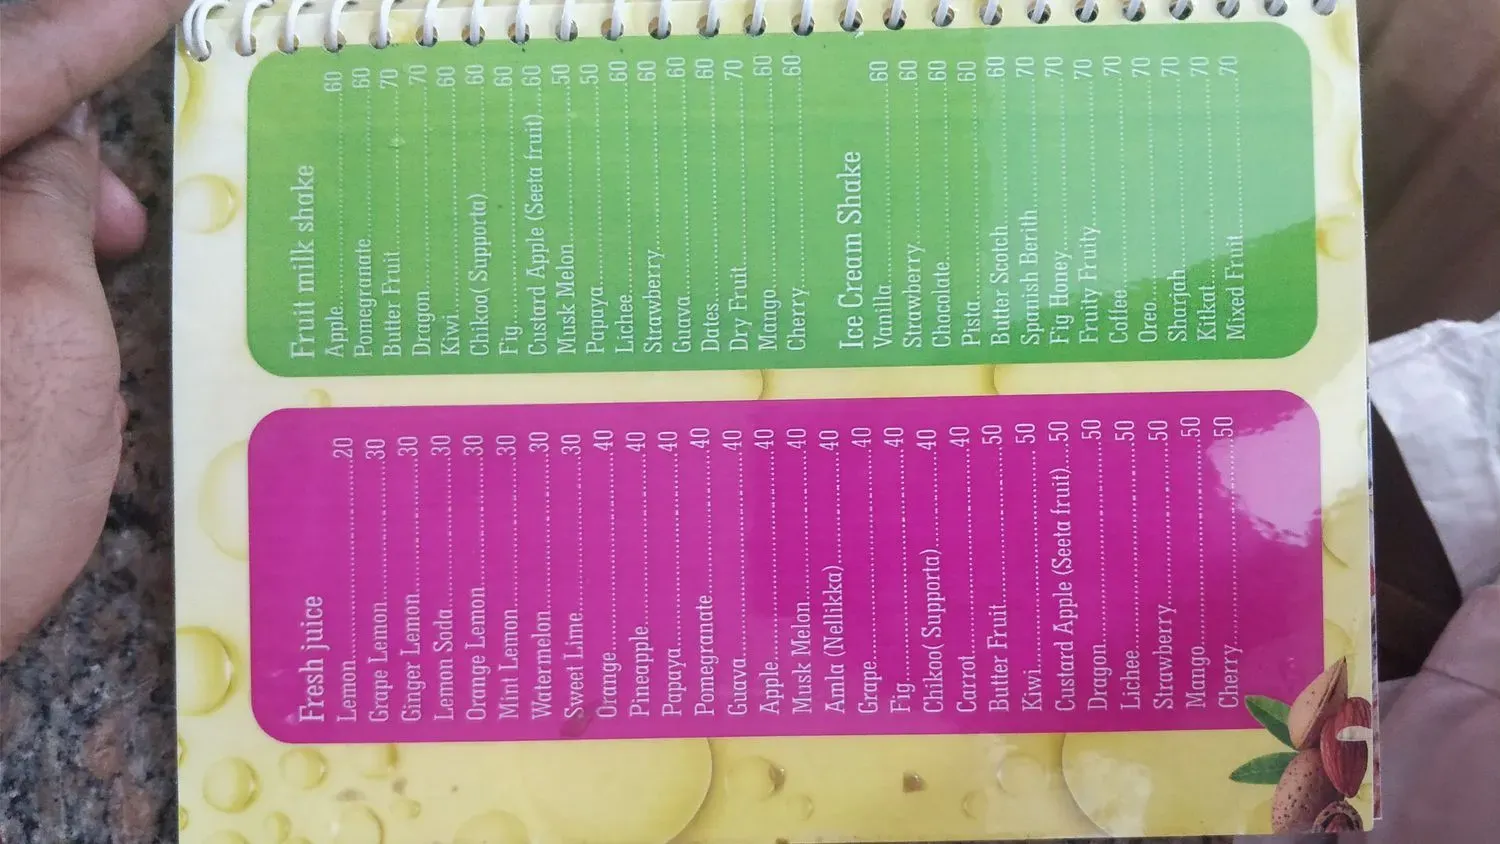 Fresh juice
Lemon 20
Grape Lemon 30
Ginger Lemon 30
Lemon Soda 30
Orange Lemon 30
Mint Lemon 30
Watermelon 30
Sweet Lime 30
Orange 40
Pineapple 40
Papaya 40
Pomegranate 40
Guava 40
Apple 40
Musk Melon 40
Amla (Nellikka) 40
Grape 40
Fig 40
Chikoo( Supporta) 40
Carrot 40
Butter Fruit 50
Kiwi 50
Custard Apple (Seeta fruit) 50
Dragon 50
Lichee 50
Strawberry 50
Mango 50
Cherry 50
Fruit milk shake
Apple 60
Pomegranate 60
Butter Fruit 70
Dragon 70
Kiwi 60
Chikoo( Supporta) 60
Fig 60
Custard Apple (Seeta fruit) 60
Musk Melon 50
Papaya 50
Lichee 60
Strawberry 60
Guava 60
Dates 60
Dry Fruit 70
Mango 60
Cherry 60
Ice Cream Shake
Vanilla 60
Strawberry 60
Chocolate 60
Pista 60
Butter Scotch 60
Spanish Berith 70
Fig Honey 70
Fruity Fruity 70
Coffee 70
Oreo 70
Sharjah 70
Kitkat 70
Mixed Fruit 70